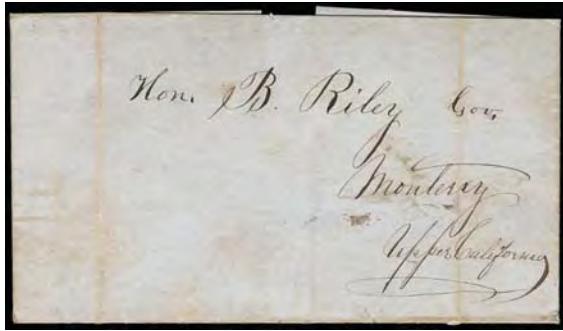 Hon. B. Riley Gov.
Monterey
Upper California